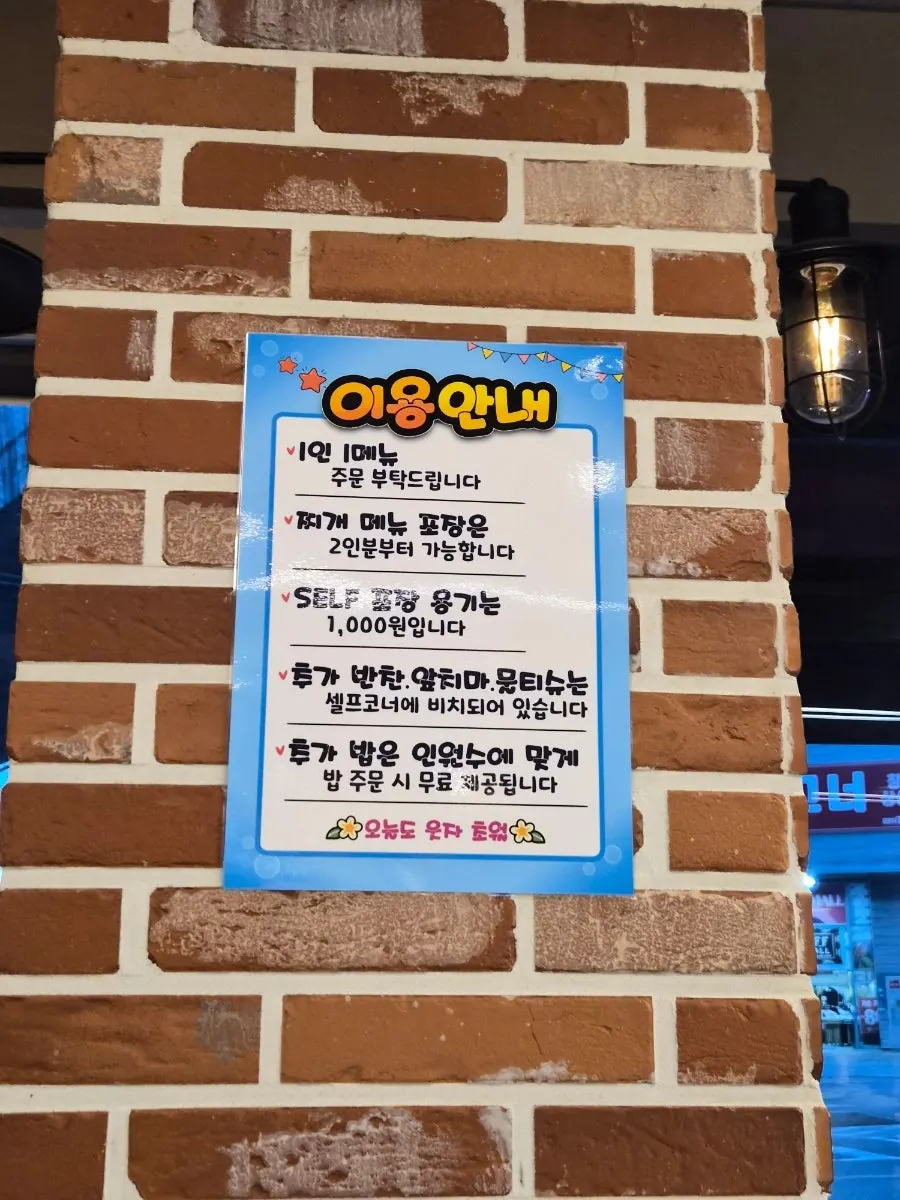 이용안내
1인 1메뉴
주문 부탁드립니다
찌개 메뉴 포장은
2인분부터 가능합니다
SELF 포장 용기는
1,000원입니다
추가 반찬.앞치마.물티슈는
셀프코너에 비치되어 있습니다
추가 밥은 인원수에 맞게
밥 주문 시 무료 제공됩니다
오늘도 웃자 초월
너